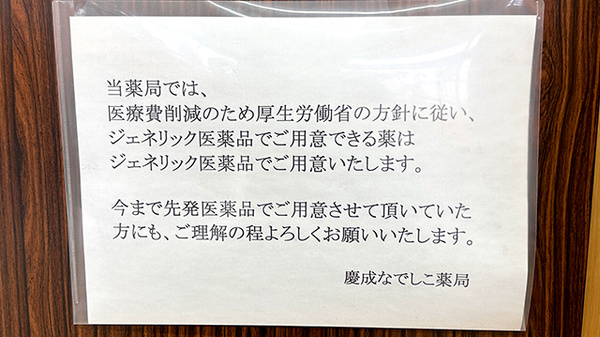 当薬局では、
医療費削減のため厚生労働省の方針に従い、
ジェネリック医薬品でご用意できる薬は
ジェネリック医薬品でご用意いたします。
今まで先発医薬品でご用意させて頂いていた
方にも、ご理解の程よろしくお願いいたします。
慶成なでしこ薬局